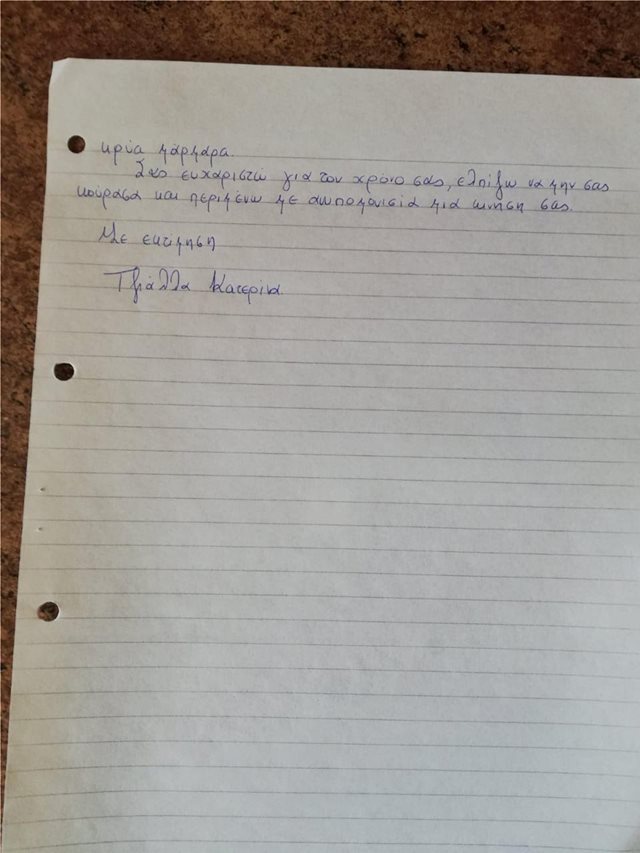 κρύα μάρμαρα.
Σας ευχαριστώ για τον χρόνο σας, ελπίζω να μην σας
κούρασα και περιμένω με ανυπομονισία μια κινηση σας.
Με εκτίμηση
Τζιάλλα Κατερινα